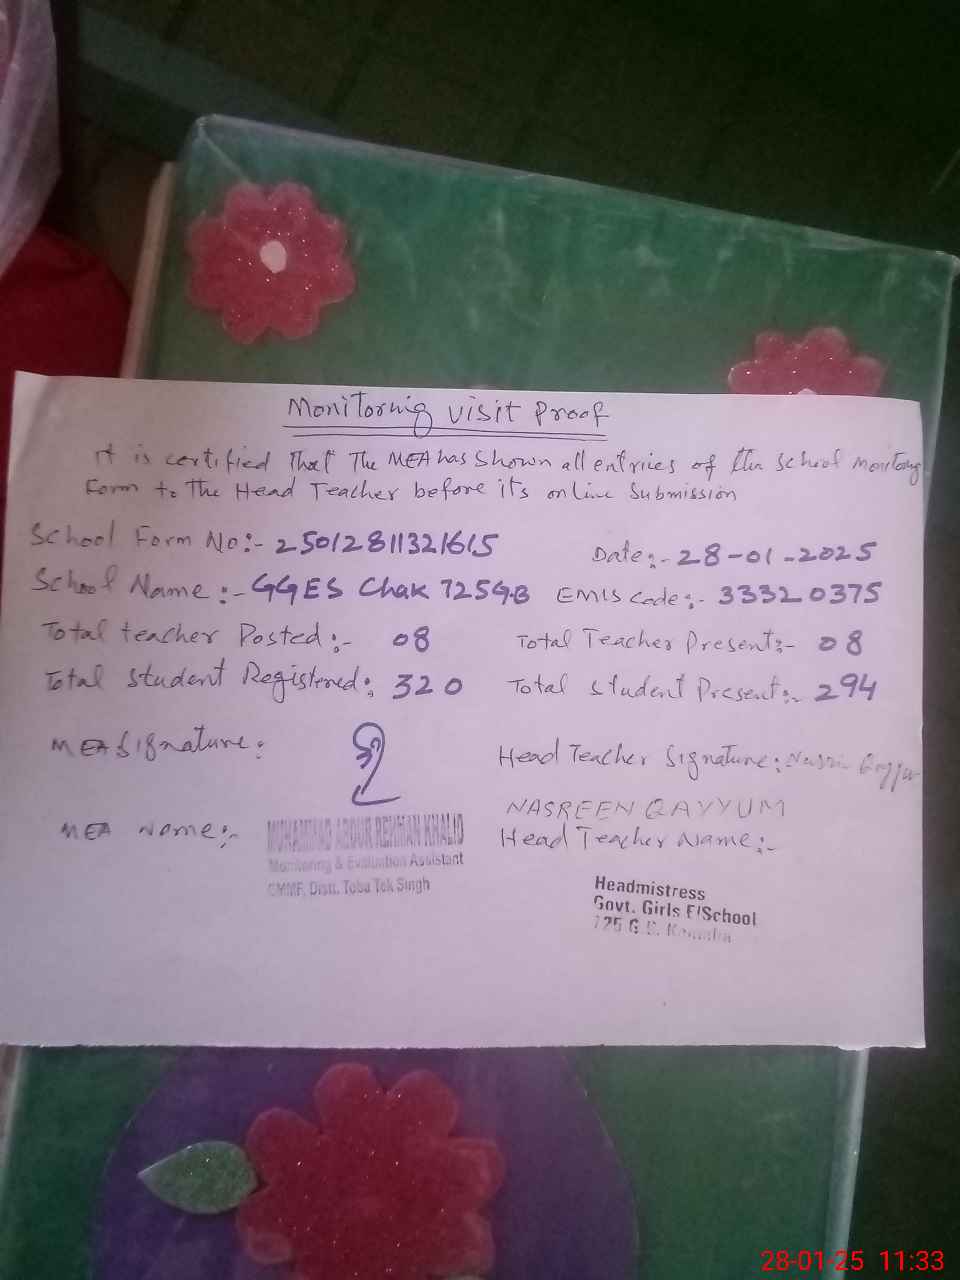 Monitornig visit Proof
it is certified That The MEA has Shown all entries of the School monitoring
Form to The Head Teacher before its online Submission
School Form No:- 25012811321615
Date:- 28-01-2025
School Name:- GGES Chak 725GB
EMIS Code:- 33320375
Total teacher Posted:- 08
Total Teacher Present:- 08
Total Student Registered:- 320
Total Student Present:- 294
MEA Signature:
Head Teacher Signature:
NASREEN QAYYUM
MEA Name:-
Head Teacher Name:-
MUHAMMAD ABDUR REHMAN KHALID
Monitoring & Evaluation Assistant
CMMF, Distt. Toba Tek Singh
Headmistress
Govt. Girls E/School
725 G.B.
28-01-25 11:33